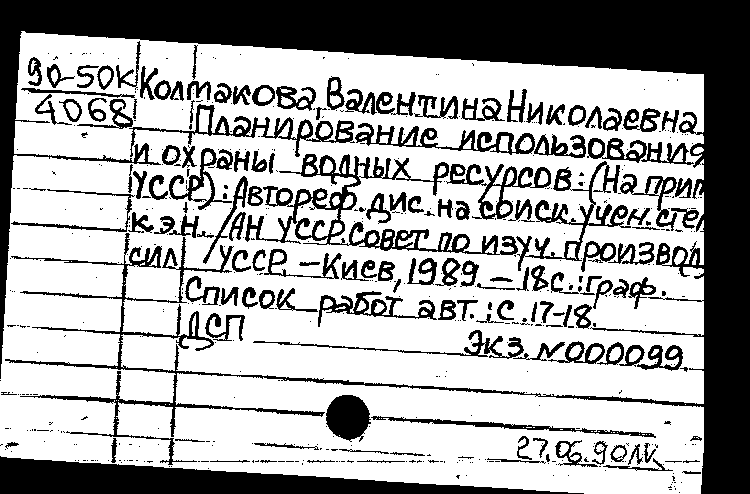 90-50К
4068
Колмакова, Валентина Николаевна
Планирование использования
и охраны водных ресурсов: (На прим
УССР): Автореф. дис. на соиск. учен. степ
к.э.н. / АН УССР. Совет по изуч. производ
сил УССР. — Киев, 1989. — 18 с.: граф.
Список работ авт.: с. 17-18.
ДСП
Экз. N000099
27.06.90